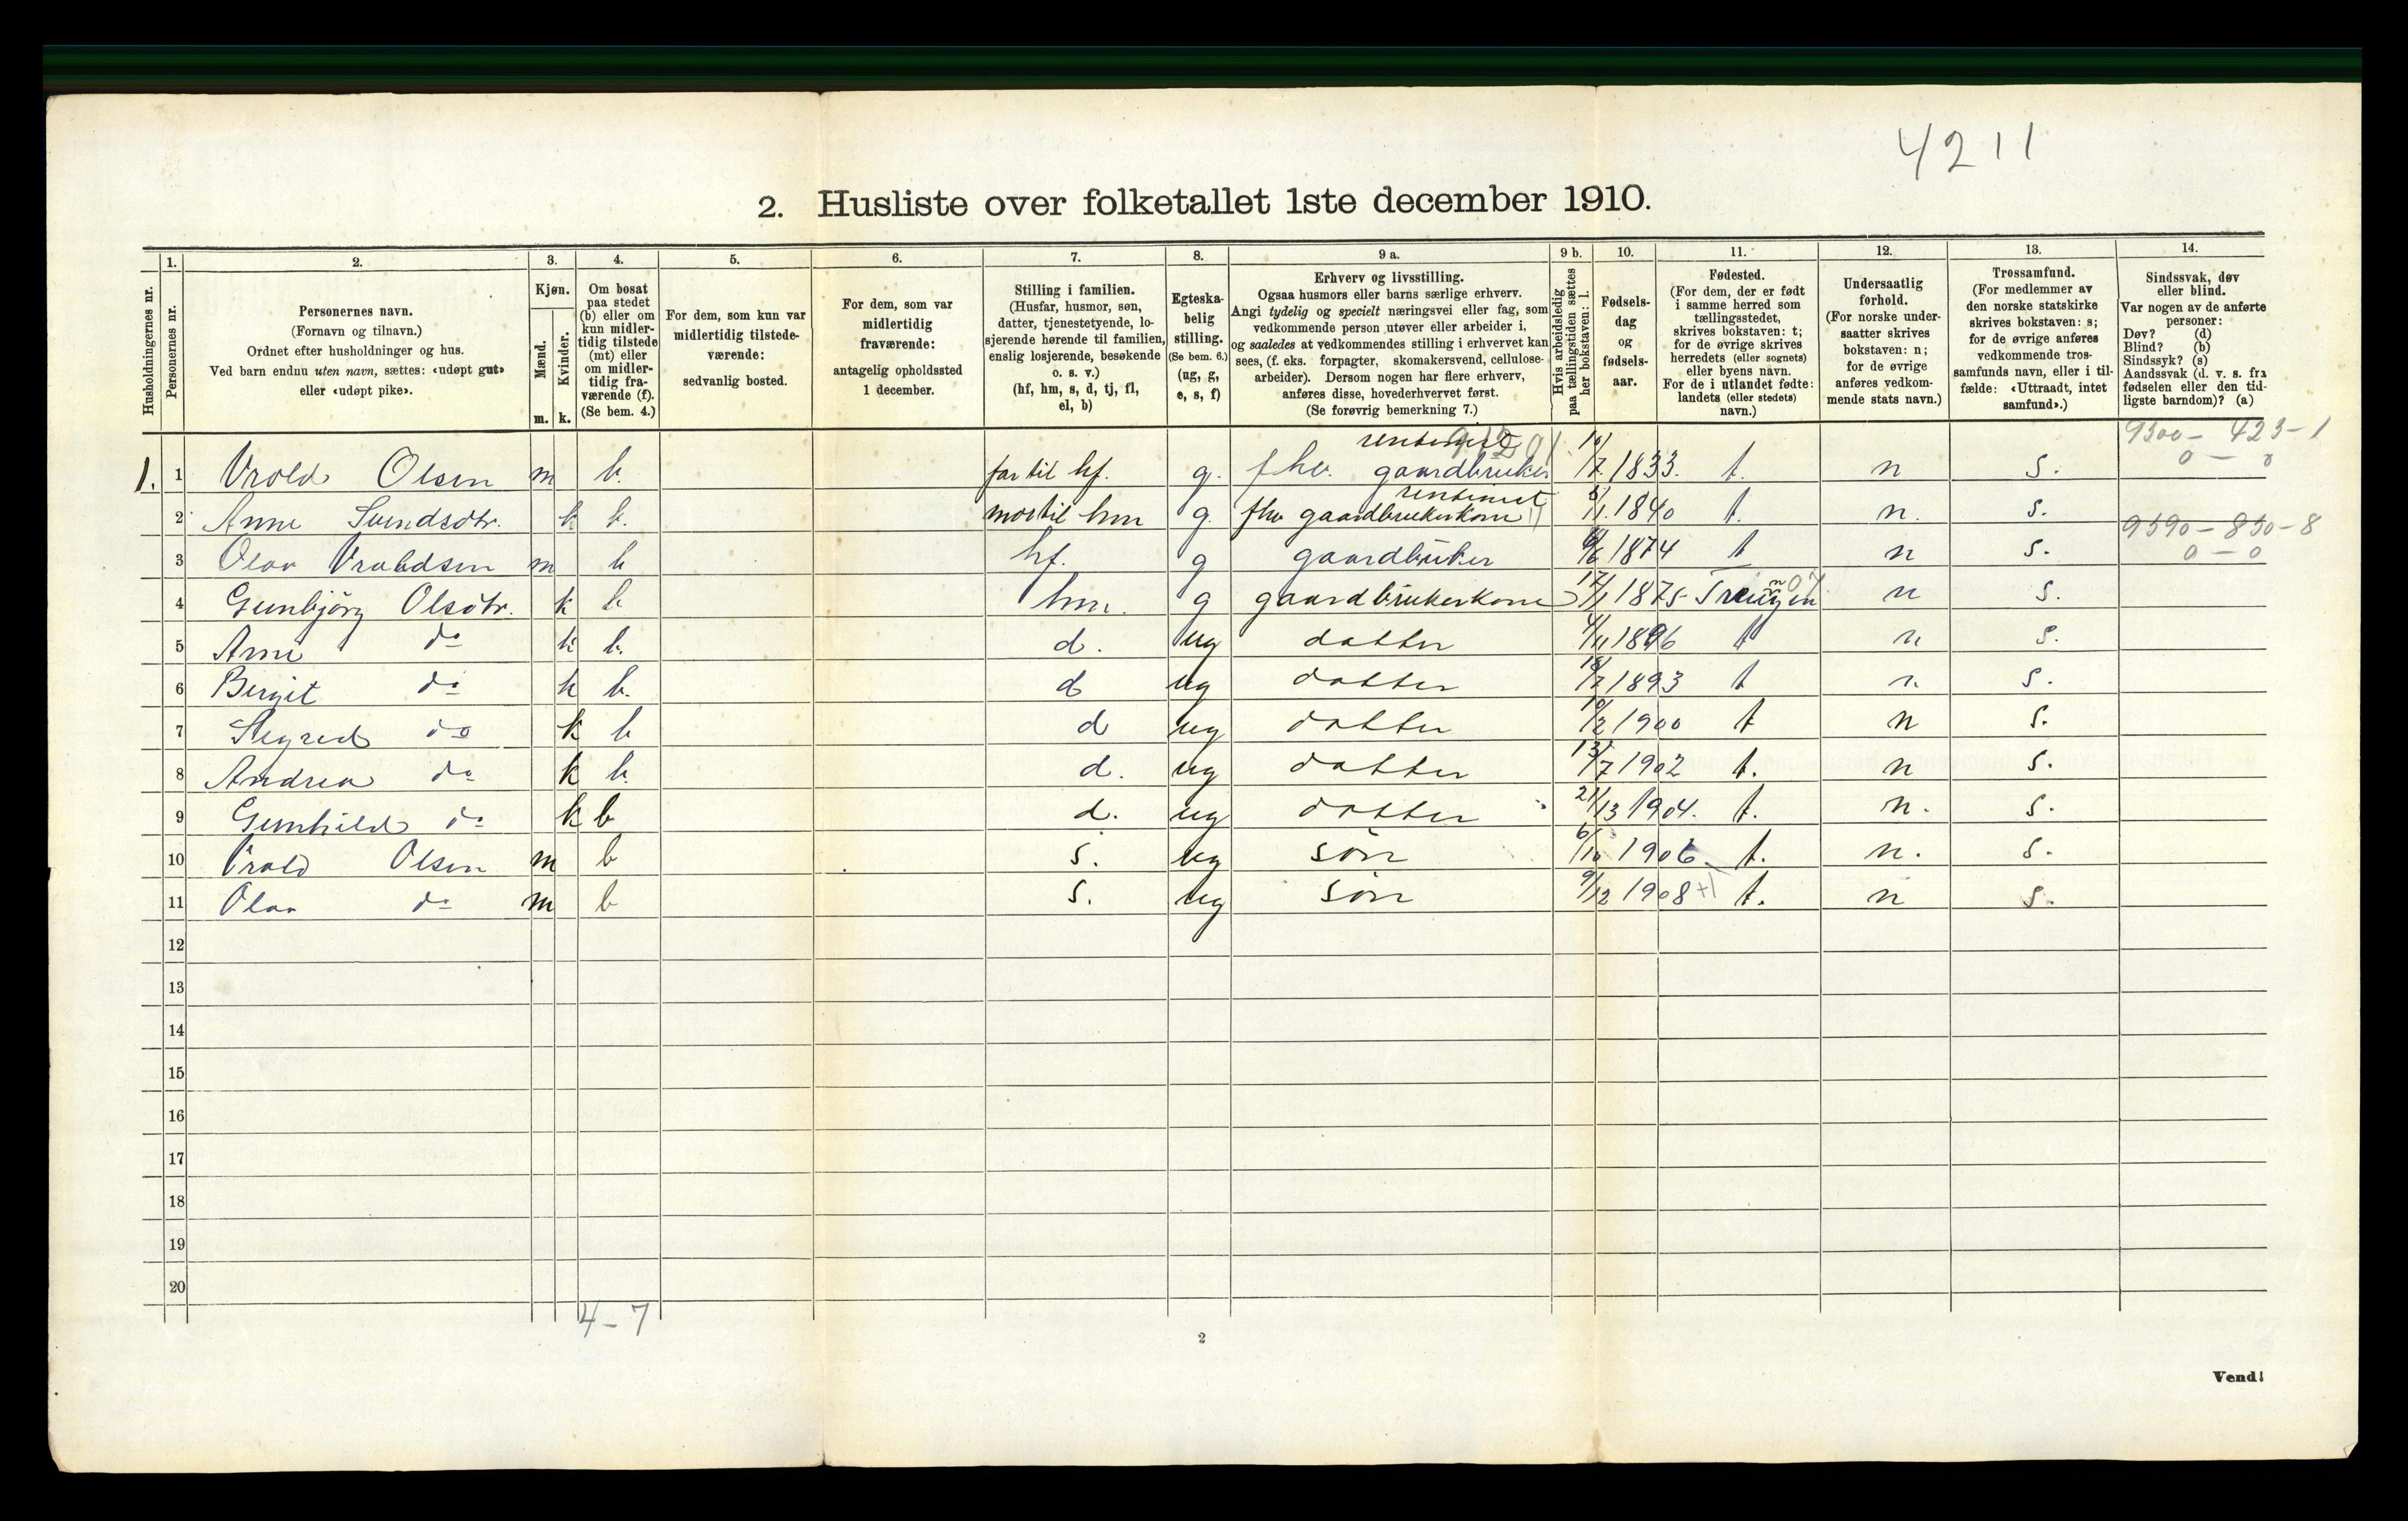 4211
2. Husliste over folketallet 1ste december 1910.
Husholdningernes nr.
1.
Personernes nr.
2.
Personernes navn.
(Fornavn og tilnavn.)
Ordnet efter husholdninger og hus.
Ved barn endnu uten navn, sættes: «udøpt gut»
eller «udøpt pike».
3.
Kjøn.
Mænd.
Kvinder.
m. k.
4.
Om bosat
paa stedet
(b) eller om
kun midler-
tidig tilstede
(mt) eller
om midler-
tidig fra-
værende (f).
(Se bem. 4.)
5.
For dem, som kun var
midlertidig tilstede-
værende:
sedvanlig bosted.
6.
For dem, som var
midlertidig
fraværende:
antagelig opholdssted
1 december.
7.
Stilling i familien.
(Husfar, husmor, søn,
datter, tjenestetyende, lo-
sjerende hørende til familien,
enslig losjerende, besøkende
o. s. v.)
(hf, hm, s, d, tj, fl,
el, b)
8.
Egteska-
belig
stilling.
(Se bem. 6.)
(ug, g,
e, s, f)
9 a.
Erhverv og livsstilling.
Ogsaa husmors eller barns særlige erhverv.
Angi tydelig og specielt næringsvei eller fag, som
vedkommende person utøver eller arbeider i,
og saaledes at vedkommendes stilling i erhvervet kan
sees, (f. eks. forpagter, skomakersvend, cellulose-
arbeider). Dersom nogen har flere erhverv,
anføres disse, hovederhvervet først.
(Se forøvrig bemerkning 7.)
9 b.
Hvis arbeidsledig
paa tællingstiden sættes
her bokstaven: l.
10.
Fødsels-
dag
og
fødsels-
aar.
11.
Fødested.
(For dem, der er født
i samme herred som
tællingsstedet,
skrives bokstaven: t;
for de øvrige skrives
herredets (eller sognets)
eller byens navn.
For de i utlandet fødte:
landets (eller stedets)
navn.)
12.
Undersaatlig
forhold.
(For norske under-
saatter skrives
bokstaven: n;
for de øvrige
anføres vedkom-
mende stats navn.)
13.
Trossamfund.
(For medlemmer av
den norske statskirke
skrives bokstaven: s;
for de øvrige anføres
vedkommende tros-
samfunds navn, eller i til-
fælde: «Uttraadt, intet
samfund».)
14.
Sindssvak, døv
eller blind.
Var nogen av de anførte
personer:
Døv? (d)
Blind? (b)
Sindssyk? (s)
Aandssvak (d. v. s. fra
fødselen eller den tid-
ligste barndom)? (a)
9300 - 423-1
0 - 0
1. 1 Vrold Olsen m b. far til hf. g. fhv. gaardbruker 1833. t. n s.
2 Anne Svendsdtr. k b. mor til hm g. fhv gaardbrukerkone 1840 t. n. s.
9590 - 850-8
0 - 0
3 Olav Vraldsen m b hf. g gaardbruker 1874 t n s.
4 Gunbjörg Olsdtr. k b hm. g gaardbrukerkone 17/1 1875 n s.
5 Anne do k b. d. ug datter 4/11 1896 t n s.
6 Bergit do k b. d ug datter 18/7 1893 t n s.
7 Sigred do k b d ug datter 1900 t n s.
8 Andrea do k b. d. ug datter 13/7 1902 t. n s.
9 Gunhild do k b d. ug datter 1904. t. n. s.
10 Vrold Olsen m b s. ug sön 6/10 1906. t. n. s.
11 Olav do m b s. ug sön 9/12 1908 +1 t. n s.
12
13
14
15
16
17
18
19
20
4-7
2
Vend!